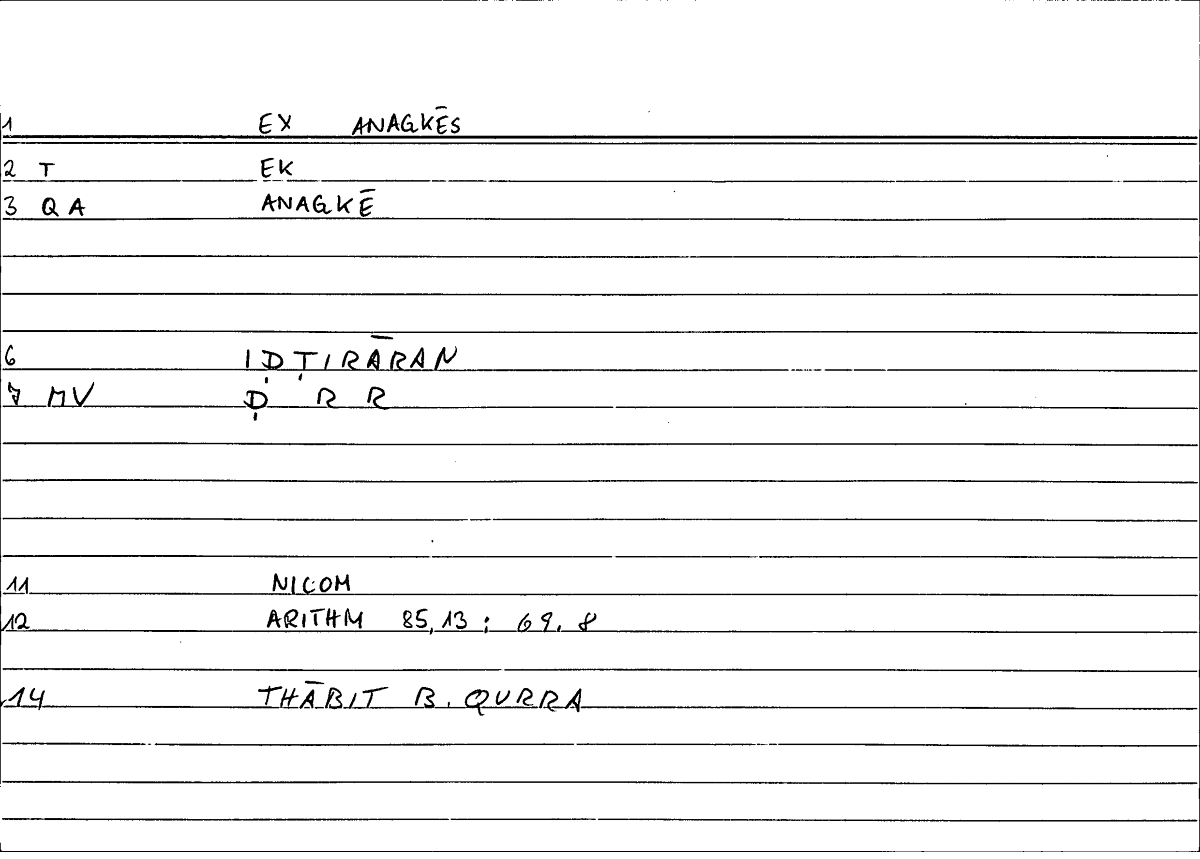 1 EX ANAGKĒS
2 T EK
3 Q A ANAGKĒ
6 IḌṬIRĀRAN
7 MV Ḍ R R
11 NICOM
12 ARITHM 85,13 ; 69.8
14 THĀBIT B. QURRA